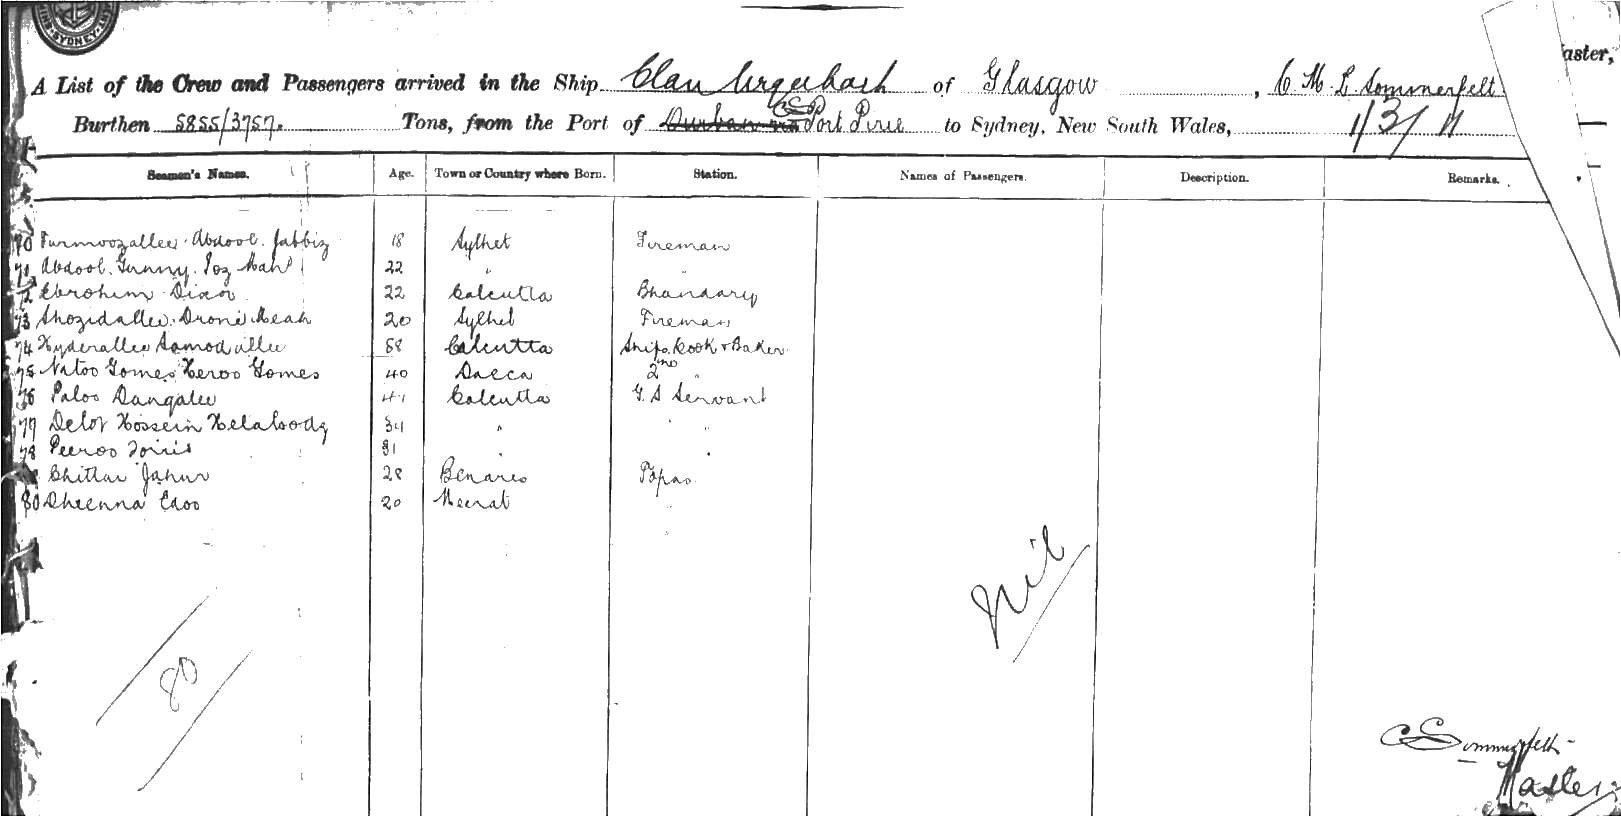 SYDNEY
aster,
A List of the Crew and Passengers arrived in the Ship Clan Urquhash of Glasgow, C. M. L. Sommerfelt
Burthen 5855/3757. Tons, from the Port of Durban via Port Pirie to Sydney, New South Wales, 1/3/11
Seamen's Names. Age. Town or Country where Born. Station. Names of Passengers. Description. Remarks.
70 Furmoozallee Abdool Jabbiz 18 Sylhet Fireman
71 Abdool Gunny 22 " "
72 Ebrohim 22 Calcutta Bhandary
73 Shozidallee Meah 20 Sylhet Fireman
74 Hyderallee Samodullee 58 Calcutta Ships Cook & Baker
75 Natoo Gomes Heroo Gomes 40 Dacca 2nd "
76 Paloo Dangalee 41 Calcutta G. S Servant
77 Hossein 34 " " "
78 Peeroo 31 " "
Chittar Jahur 28 Benares Topas
80 Dheenna Edoo 20 Meerat
Nil
80
C Sommerfelt
Master